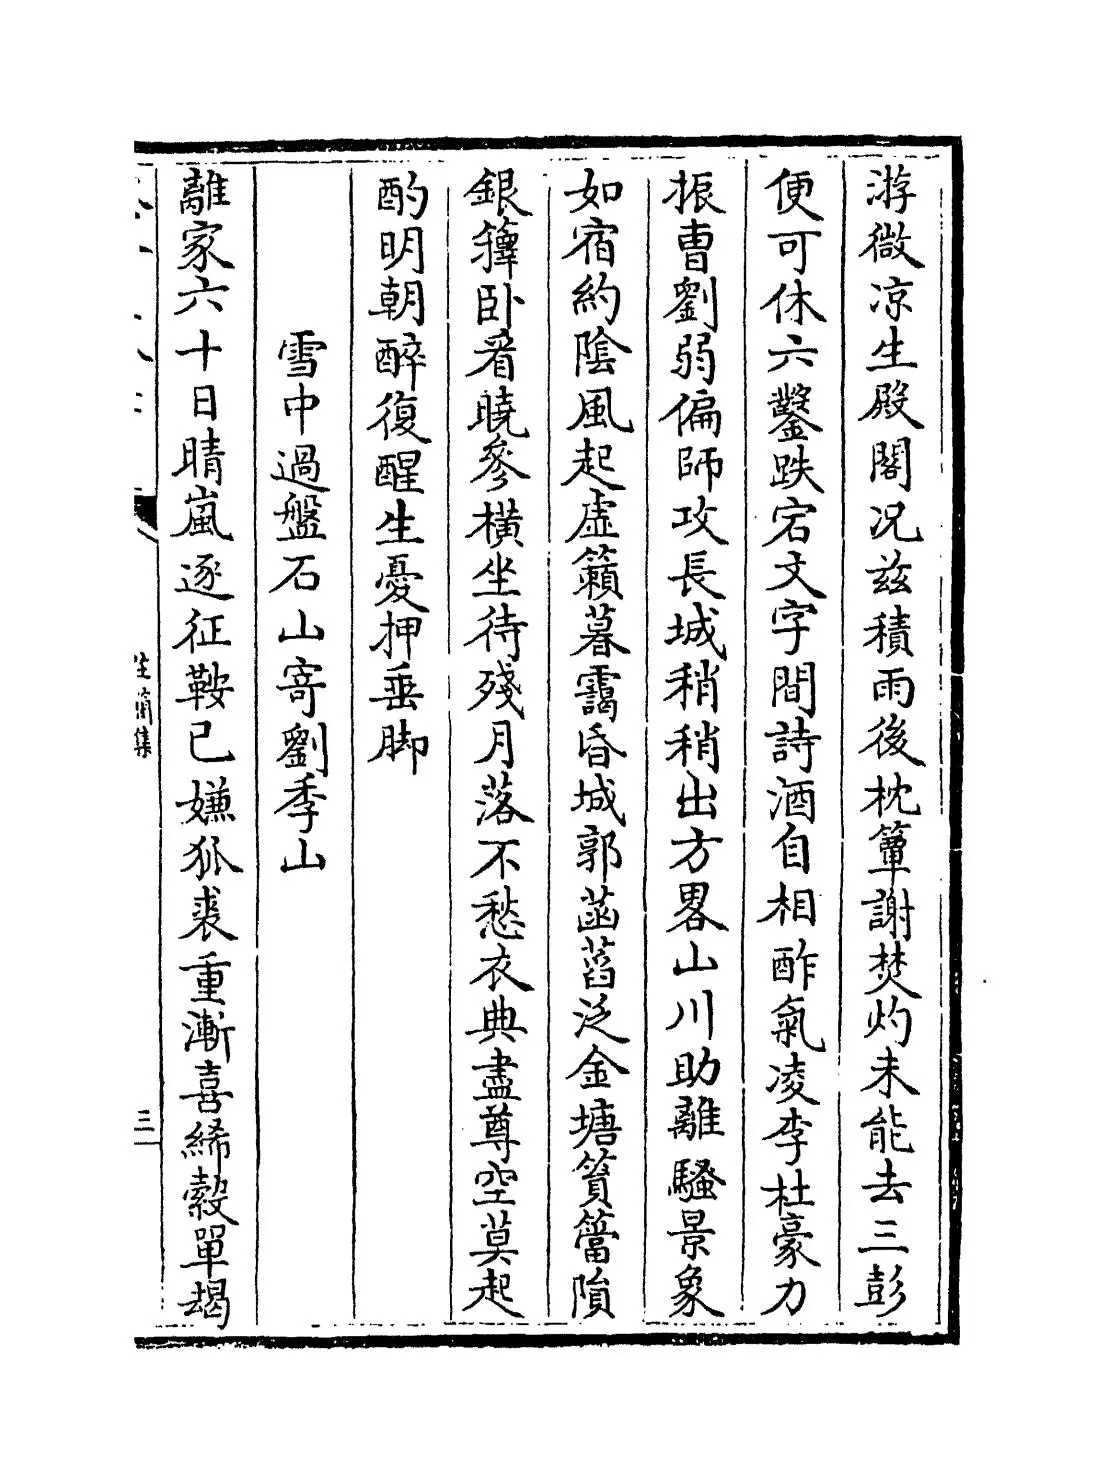 游微凉生殿閣况兹積雨後枕簟謝焚灼未能去三彭
便可休六鑿跌宕文字間詩酒自相酢氣凌李杜豪力
振曹劉弱偏師攻長城稍稍出方畧山川助離騷景象
如宿約陰風起虚籟暮靄昏城郭菡萏泛金塘篔簹隕
銀籜卧看曉參横坐待殘月落不愁衣典盡尊空莫起
酌明朝醉復醒生憂押垂脚
雪中過盤石山寄劉季山
離家六十日晴嵐逐征鞍已嫌狐裘重漸喜絺縠單朅
三